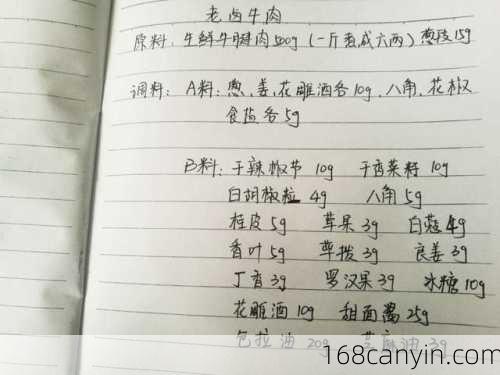 老卤牛肉
原料：生鲜牛腱肉500g（一斤煮成六两）葱段15g
调料：A料：葱、姜、花雕酒各10g、八角、花椒
食盐各5g
B料：干辣椒节 10g 干香菜籽 10g
白胡椒粒 4g 八角 5g
桂皮 5g 草果 3g 白蔻 4g
香叶 5g 荜拨 3g 良姜 3g
丁香 3g 罗汉果 3g 冰糖 10g
花雕酒 10g 甜面酱 25g
色拉油 20g 芝麻油 3g
168canyin.com